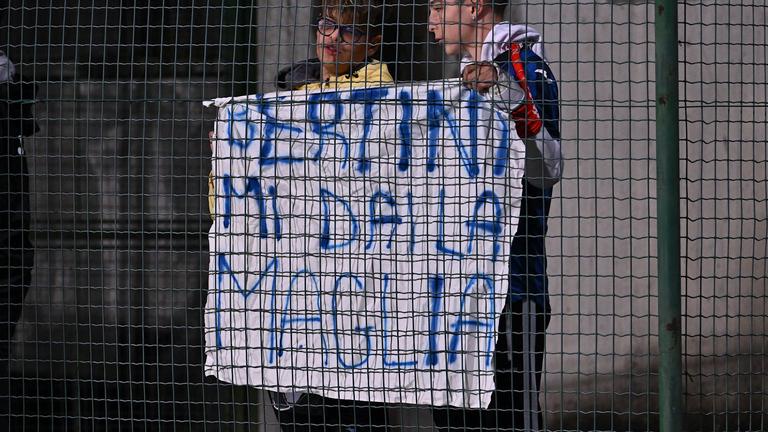 BERTINI
MI DAI LA
MAGLIA